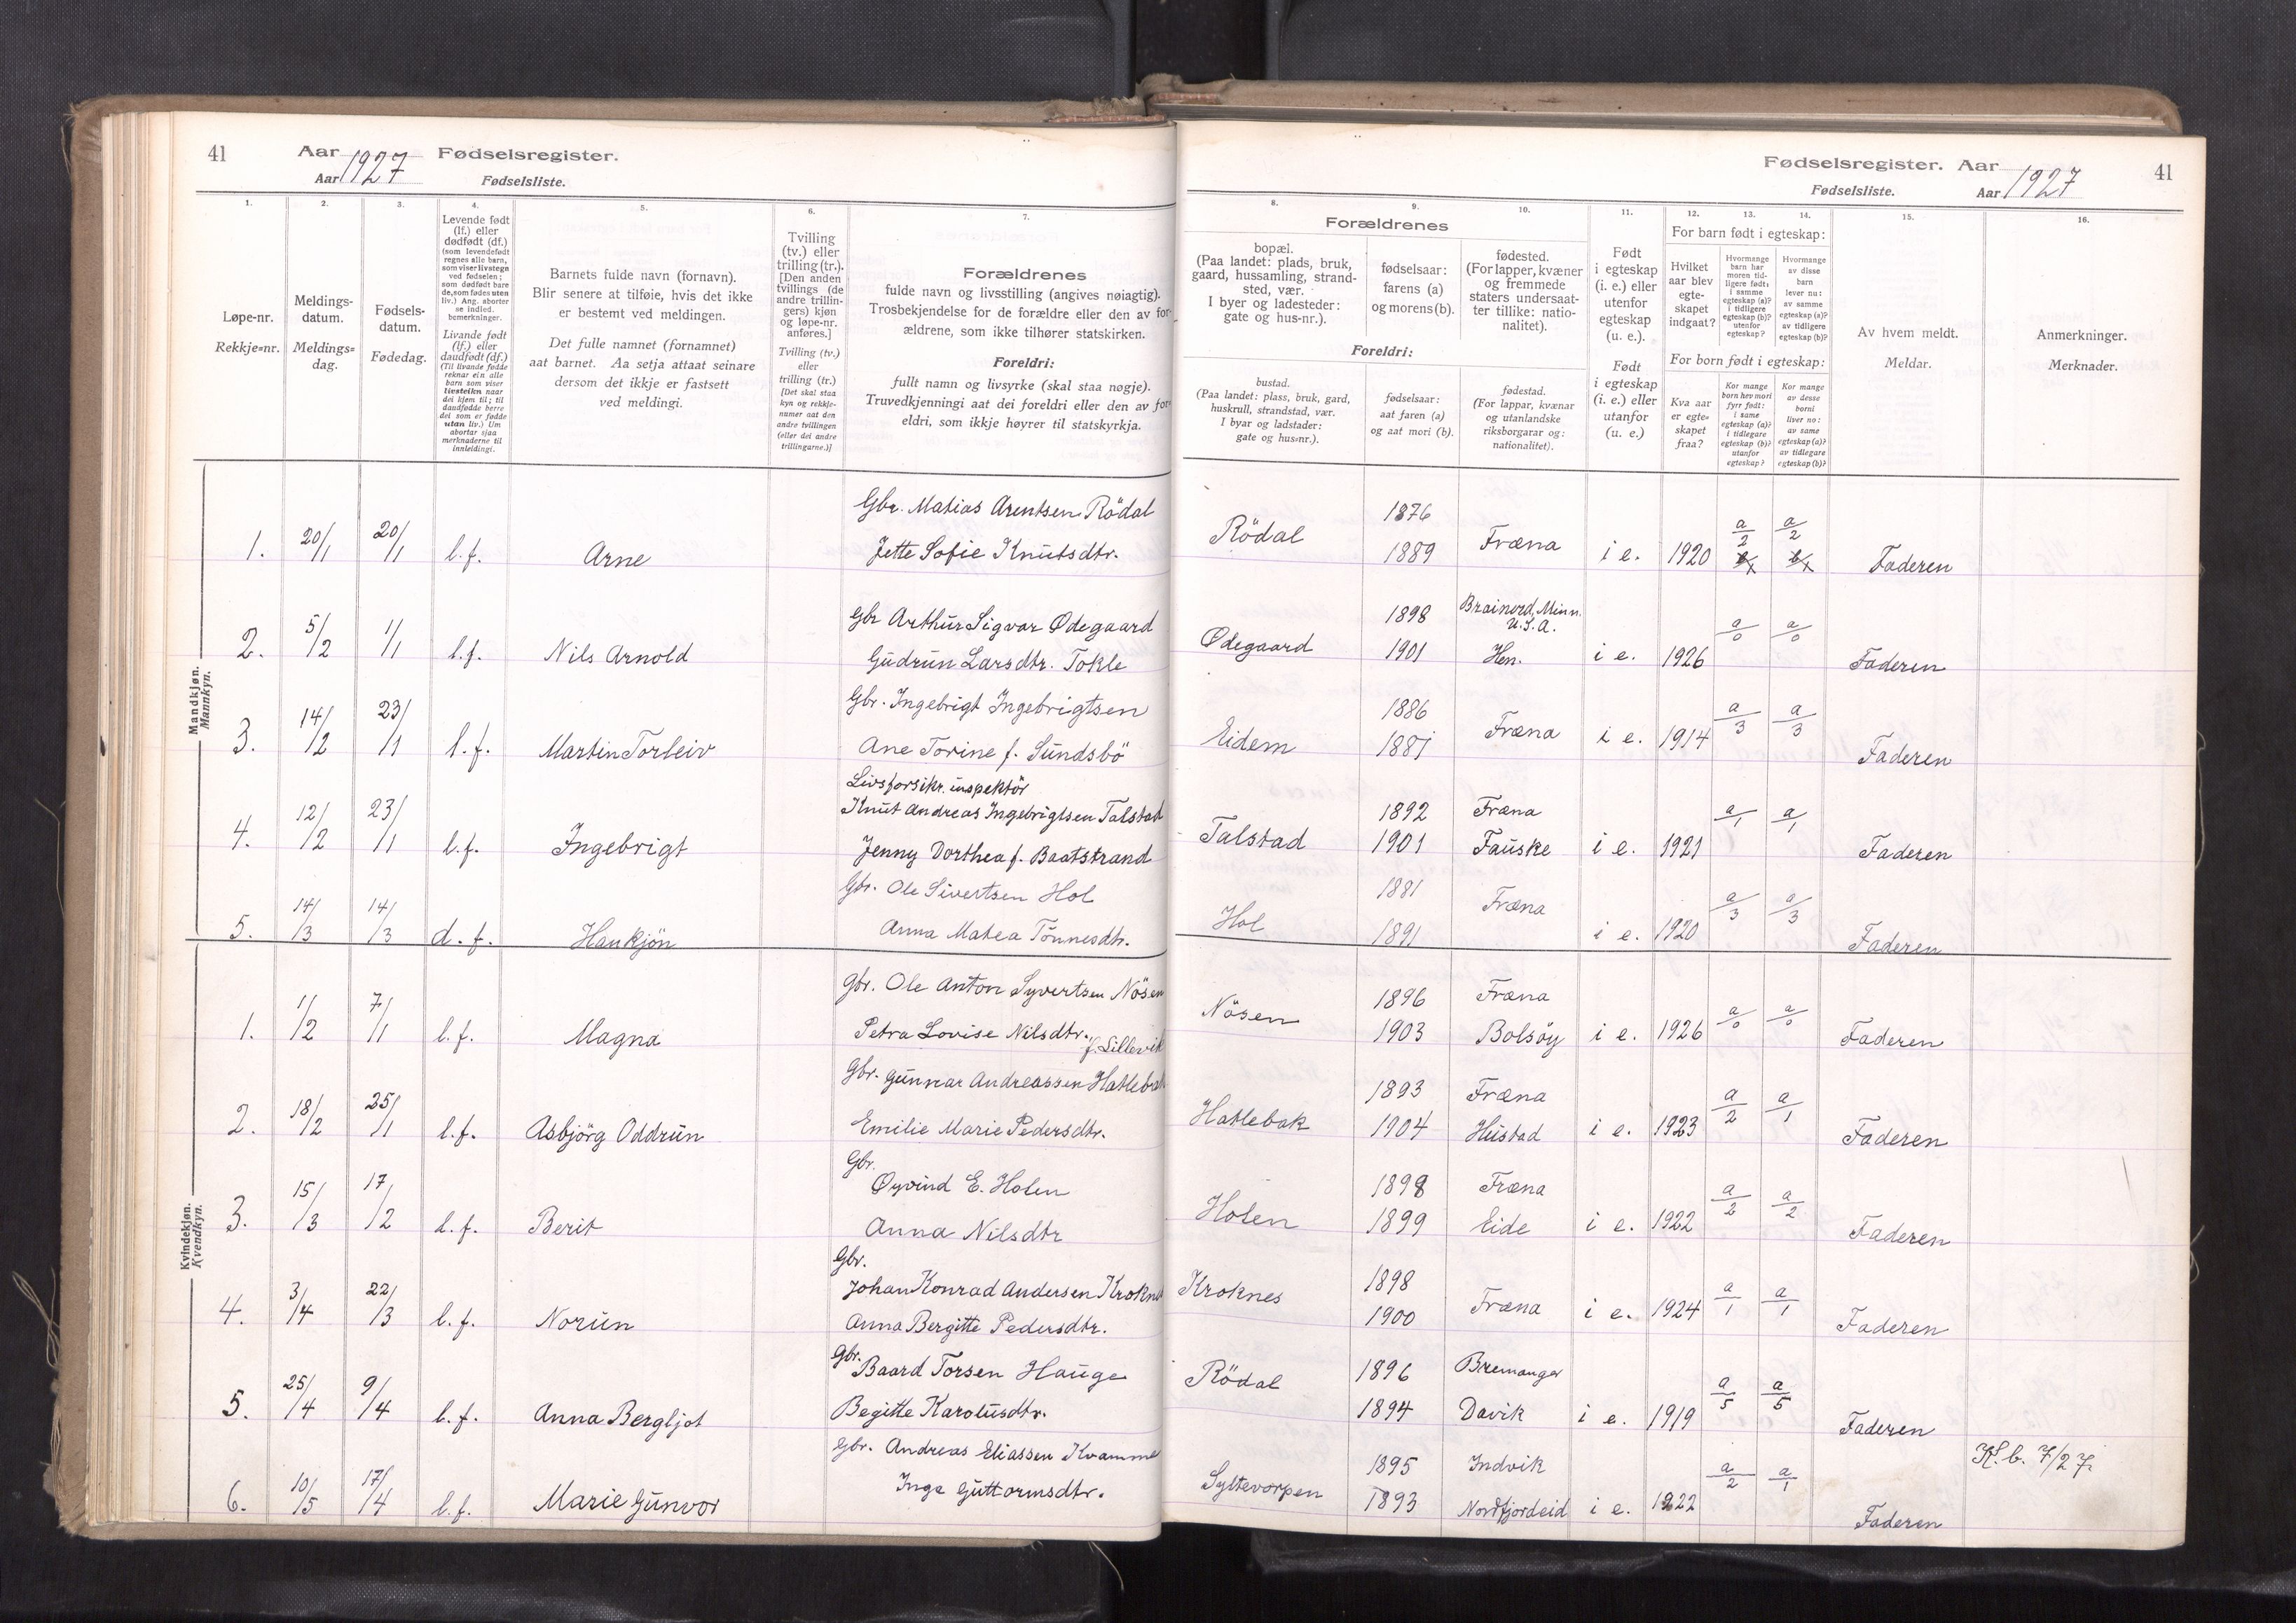 41 Aar 1927 Fødselsregister.
Aar Fødselsliste.
1. 2. 3. 4. 5. 6. 7.
Løpe-nr.
Rekkje=nr.
Meldings-
datum.
Meldings=
dag.
Fødsels-
datum.
Fødedag.
Levende født
(lf.) eller
dødfødt (df.)
(som levendefødt
regnes alle barn,
som viser livstegn
ved fødselen;
som dødfødt bare
de, som fødes uten
liv.) Ang. aborter
se indled.
bemerkninger.
Livande født
(lf.) eller
daudfødt (df.)
(Til livande fødde
reknar ein alle
barn som viser
livsteikn naar
dei kjem til; til
daudfødde berre
dei som er fødde
utan liv.) Um
abortar sjaa
merknaderne til
innleidingi.
Barnets fulde navn (fornavn).
Blir senere at tilføie, hvis det ikke
er bestemt ved meldingen.
Det fulle namnet (fornamnet)
aat barnet. Aa setja attaat seinare
dersom det ikkje er fastsett
ved meldingi.
Tvilling
(tv.) eller
trilling (tr.).
[Den anden
tvillings (de
andre trillin-
gers) kjøn
og løpe-nr.
anføres.]
Tvilling (tv.)
eller
trilling (tr.)
[Det skal staa
kyn og rekkje-
numer aat den
andre tvillingen
(eller dei andre
trillingarne.)]
Forældrenes
fulde navn og livsstilling (angives nøiagtig).
Trosbekjendelse for de forældre eller den av for-
ældrene, som ikke tilhører statskirken.
Foreldri:
fullt namn og livsyrke (skal staa nøgje).
Truvedkjenningi aat dei foreldri eller den av for-
eldri, som ikkje høyrer til statskyrkja.
Mandkjøn.
Mannkyn.
Gbr. Matias Arentsen Rödal
1. 20/1 20/1 l.f. Arne Jette Sofie Knutsdtr.
Gbr Arthur Sigvar Ødegaard
2. 5/2 1/1 l.f. Nils Arnold Gudrun Larsdtr. Tokle
Gbr. Ingebrigt Ingebrigtsen
3. 14/2 23/1 l.f. Martin Torleiv Ane Torine f. Sundsbö
Livsforsikr. inspektör
Knut Andreas Ingebrigtsen Talstad
4. 12/2 23/1 l.f. Ingebrigt Jenny Dorthea f. Baatstrand
Gbr. Ole Sivertsen Hol
5. 14/3 14/3 d.f. Hankjön Anna Matea Tönnesdtr.
Kvindekjøn.
Kvendkyn.
Gbr. Ole Anton Syvertsen Nösen
1. 1/2 7/1 l.f. Magna Petra Lovise Nilsdtr.
f. Lillevik
Gbr. Gunnar Andreassen Hatlebak
2. 18/2 25/1 l.f. Asbjörg Oddrun Emilie Marie Pedersdtr.
Gbr.
Øyvind E. Holen
3. 15/3 17/2 l.f. Berit Anna Nilsdtr
Gbr.
Johan Konrad Andersen Kroknes
4. 3/4 22/3 l.f. Norun Anna Bergitte Pedersdtr.
Gbr. Baard Torsen Hauge
5. 25/4 9/4 l.f. Anna Bergljot Begitte Karolusdtr.
Gbr. Andreas Eliassen Kvamme
6. 10/5 17/4 l.f. Marie Gunvor Inga Guttormsdtr.
Fødselsregister. Aar 1927 41
Fødselsliste. Aar
8. 9. 10. 11. 12. 13. 14. 15. 16.
Forældrenes
bopæl.
(Paa landet: plads, bruk,
gaard, hussamling, strand-
sted, vær.
I byer og ladesteder:
gate og hus-nr.).
fødselsaar:
farens (a)
og morens (b).
fødested.
(For lapper, kvæner
og fremmede
staters undersaat-
ter tillike: natio-
nalitet).
Foreldri:
bustad.
(Paa landet: plass, bruk, gard,
huskrull, strandstad, vær.
I byar og ladstader:
gate og hus=nr.).
fødselsaar:
aat faren (a)
og aat mori (b).
fødestad.
(For lappar, kvænar
og utanlandske
riksborgarar og:
nationalitet).
Født
i egteskap
(i. e.) eller
utenfor
egteskap
(u. e.).
Født
i egteskap
(i. e.) eller
utanfor
(u. e.)
For barn født i egteskap:
Hvilket
aar blev
egte-
skapet
indgaat?
Hvormange
barn har
moren tid-
ligere født:
i samme
egteskap (a)?
i tidligere
egteskap (b)?
utenfor
egteskap?
Hvormange
av disse
barn
lever nu:
av samme
egteskap (a)?
av tidligere
egteskap (b)?
For born født i egteskap:
Kva aar
er egte=
skapet
fraa?
Kor mange
born hev mori
fyrr født:
i same
egteskap (a)?
i tidlegare
egteskap (b)?
utanfor
egteskap?
Kor mange
av desse
borni
liver no:
av same
egteskap (a)?
av tidlegare
egteskap (b)?
Av hvem meldt.
Meldar.
Anmerkninger.
Merknader.
1876
Rödal 1889 Fræna i e. 1920 a/2 a/2 Faderen
1898 Brainerd, Minn.
U.S.A.
Ødegaard 1901 Hen. i e. 1926 a/0 a/0 Faderen
1886
Eidem 1887 Fræna i e. 1914 a/3 a/3 Faderen
1892 Fræna
Talstad 1901 Fauske i e. 1921 a/1 a/1 Faderen
1881 Fræna
Hol 1891 i e. 1920 a/3 a/3 Faderen
1896 Fræna
Nösen 1903 Bolsöy i e. 1926 a/0 a/0 Faderen
1893 Fræna
Hatlebak 1904 Hustad i e. 1923 a/2 a/1 Faderen
1898 Fræna
Holen 1899 Eide i e. 1922 a/2 a/2 Faderen
Kroknes 1898
1900 Fræna i e. 1924 a/1 a/1 Faderen
Rödal 1896 Bremanger
1894 Davik i e. 1919 a/5 a/5 Faderen
1895 Indvik K.b. 7/27.
Syltevorpen 1893 Nordfjordeid i e. 1922 a/2 a/1 Faderen